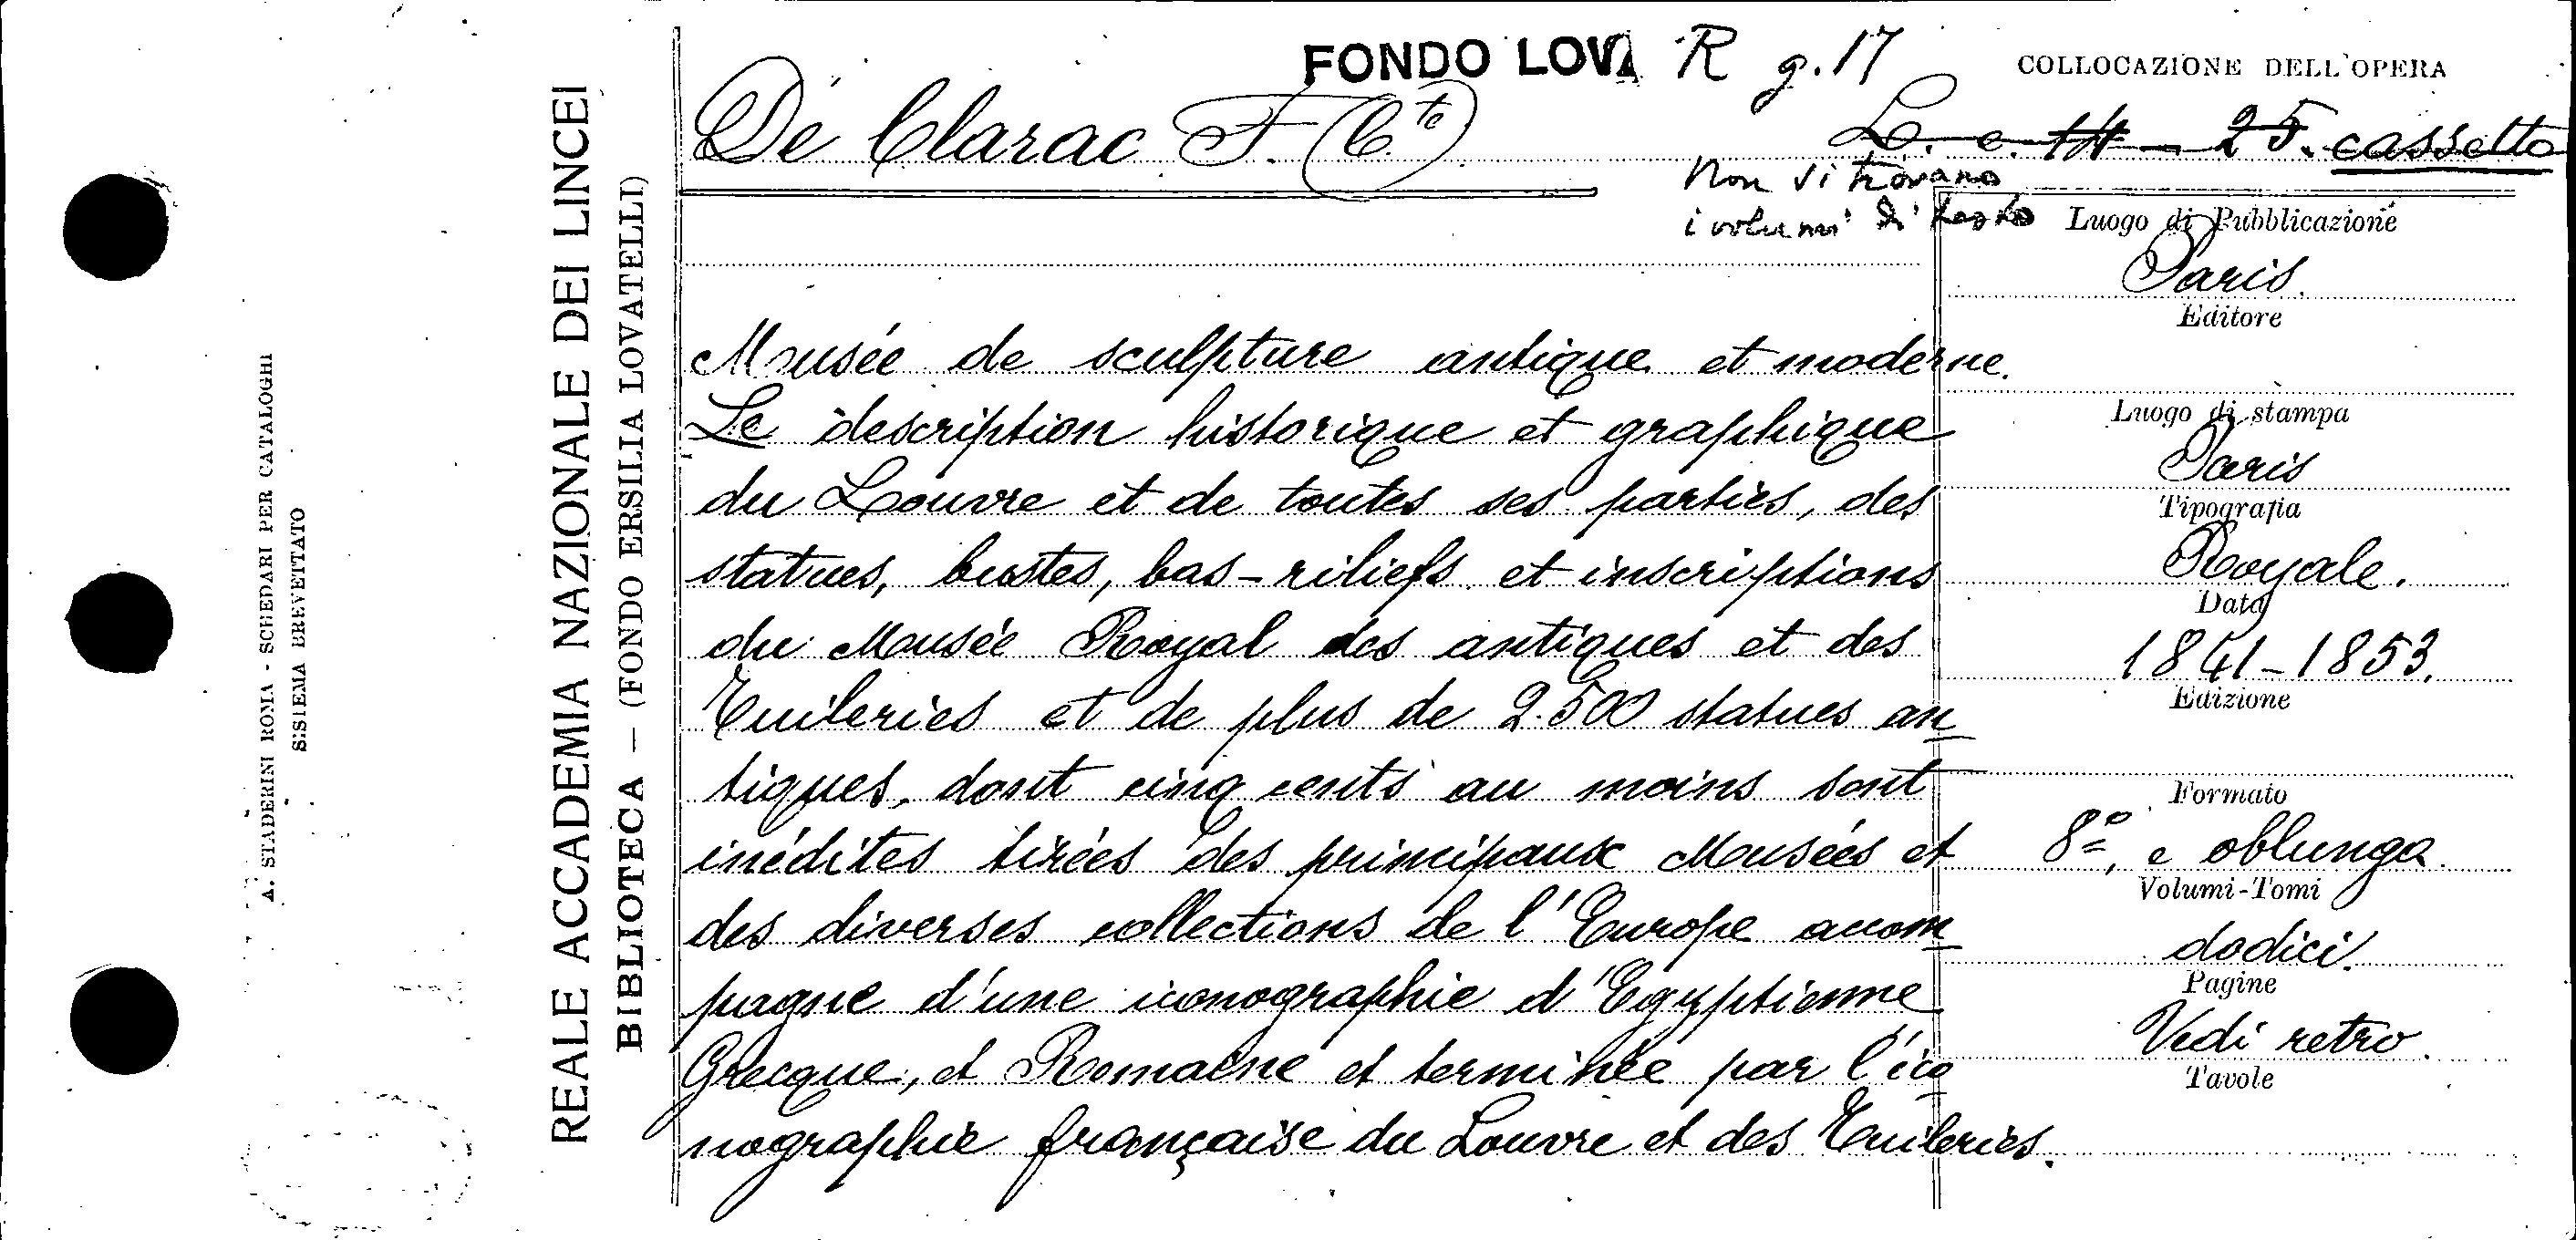 FONDO LOVA R g.17
COLLOCAZIONE DELL'OPERA
De Clarac F. (Cte)
Lo. e. 14 - 25. cassetto
Non si trovano
i volumi di testo
Musée de sculpture antique et moderne.
Le description historique et graphique
du Louvre et de toutes ses parties, des
statues, bustes, bas-riliefs et inscriptions
du Musée Royal des antiques et des
Tuileries et de plus de 2.500 statues an
tiques, dont cinq cents au moins sont
inédites tirées des principaux Musées et
des diverses collections de l'Europe accom
pagne d'une iconographie d'Egyptienne
Grecque, et Romaine et terminée par l'ico
nographie française du Louvre et des Tuileries.
Luogo di Pubblicazione
Paris.
Editore
Luogo di stampa
Paris
Tipografia
Royale.
Data
1841-1853.
Edizione
Formato
8º, e oblunga.
Volumi-Tomi
dodici.
Pagine
Vedi retro.
Tavole
REALE ACCADEMIA NAZIONALE DEI LINCEI
BIBLIOTECA — (FONDO ERSILIA LOVATELLI)
A. STADERINI ROMA - SCHEDARI PER CATALOGHI
SISTEMA BREVETTATO